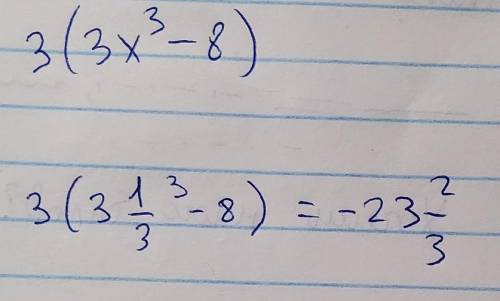 3(3x³-8)
3(3 1/3 ³-8) = -23 2/3